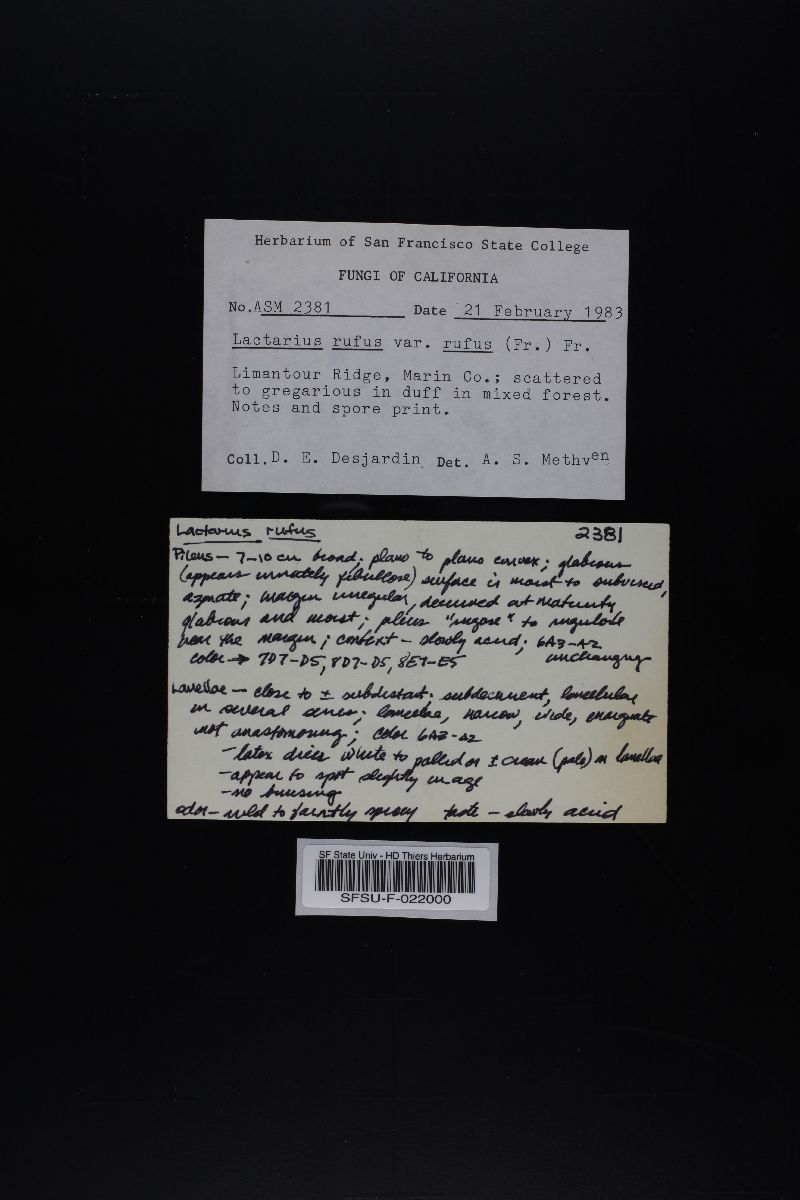 Herbarium of San Francisco State College
FUNGI OF CALIFORNIA
No. ASM 2381 Date 21 February 1983
Lactarius rufus var. rufus (Fr.) Fr.
Limantour Ridge, Marin Co.; scattered
to gregarious in duff in mixed forest.
Notes and spore print.
Coll. D. E. Desjardin Det. A. S. Methven
Lactarius rufus 2381
Pileus — 7-10 cm broad; plano to plano convex; glabrous
(appears innately fibrillose) surface is moist to subviscid,
azonate; margin irregular, decurved at maturity
glabrous and moist; pileus "rugose" to rugulose
near the margin; context — slowly acrid; 6A3-A2
color → 7D7-D5, 8D7-D5, 8E7-E5 unchanging
Lamellae — close to ± subdistant; subdecurrent, lamellulae
in several series; lamellae, narrow, wide, emarginate
not anastomosing; color 6A3-A2
- latex dries white to pallid or ± cream (pale) on lamellae
- appear to spot slightly in age
- no bruising
odor — mild to faintly spicey taste — slowly acrid
SF State Univ - HD Thiers Herbarium
SFSU-F-022000